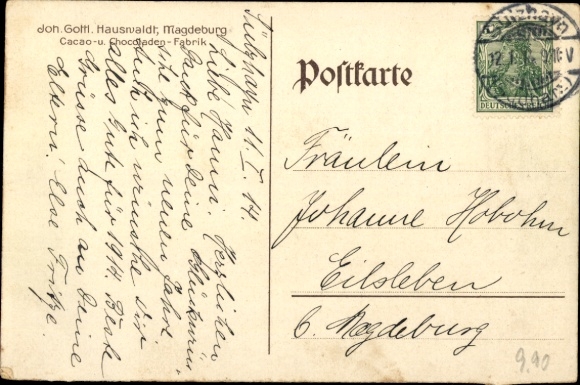 Joh. Gottl. Hauswaldt, Magdeburg
Cacao- u. Chocoladen-Fabrik
Postkarte
DEUTSCHES REICH
Sülzhayn 11. I. 14
Liebe Hanni! Herzlichen
Dank für Deine Glückwün-
sche zum neuen Jahr!
Auch ich wünsche Dir
alles Gute für 1914. Beste
Grüsse auch an Deine
Eltern! Else Fritze.
Fräulein
Johanne Hobohm
Eilsleben
b. Magdeburg
9.90